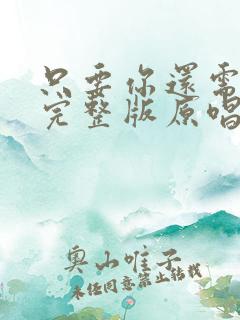 只要你還需
完整版原唱
奧山唯子
未经同意禁止转载